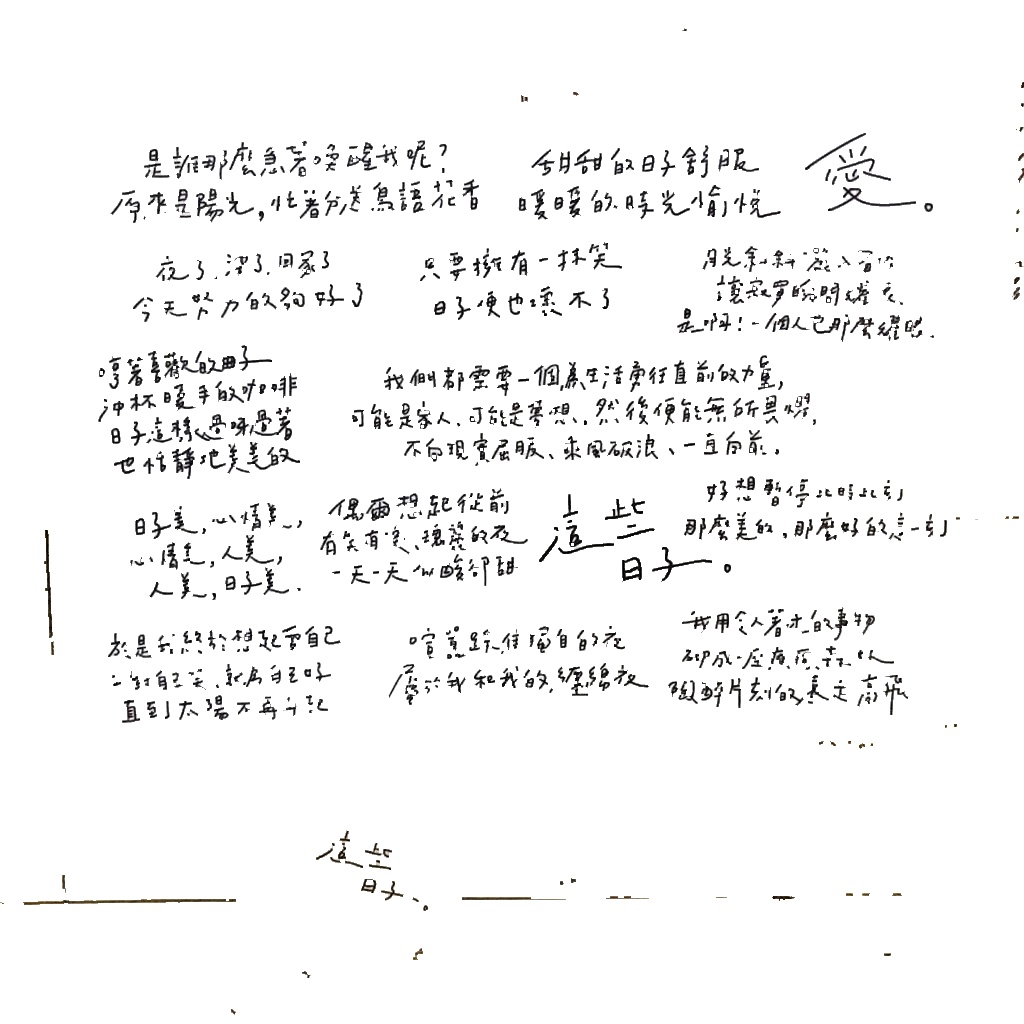 是誰那麼急著喚醒我呢？
原來是陽光，忙著分送鳥語花香
甜甜的日子舒服
暖暖的時光愉悅
愛。
夜了，深了，回家了
今天努力的夠好了
只要擁有一抹笑
日子便也壞不了
月光斜斜灑入
讓寂寞的
是啊！一個人也那麼耀眼．
哼著喜歡的曲子
沖杯暖手的咖啡
日子這樣過呀過著
也恬靜地美美的
我們都需要一個為生活勇往直前的力量，
可能是家人、可能是夢想、然後便能無所畏懼，
不向現實屈服、乘風破浪、一直向前。
日子美，心情美，
心情美，人美，
人美，日子美．
偶爾想起從前
有笑有淚、瑰麗的夜
一天一天似酸卻甜
這些
日子。
好想暫停此時此刻
那麼美的，那麼好的這一刻
於是我終於想起愛自己
自己笑、就為自己好
直到太陽不再升起
喧囂趕往獨自的夜
屬於我和我的，纏綿夜
我用令人著迷的事物
砌成一座
陶醉片刻的，遠走高飛
這些
日子。